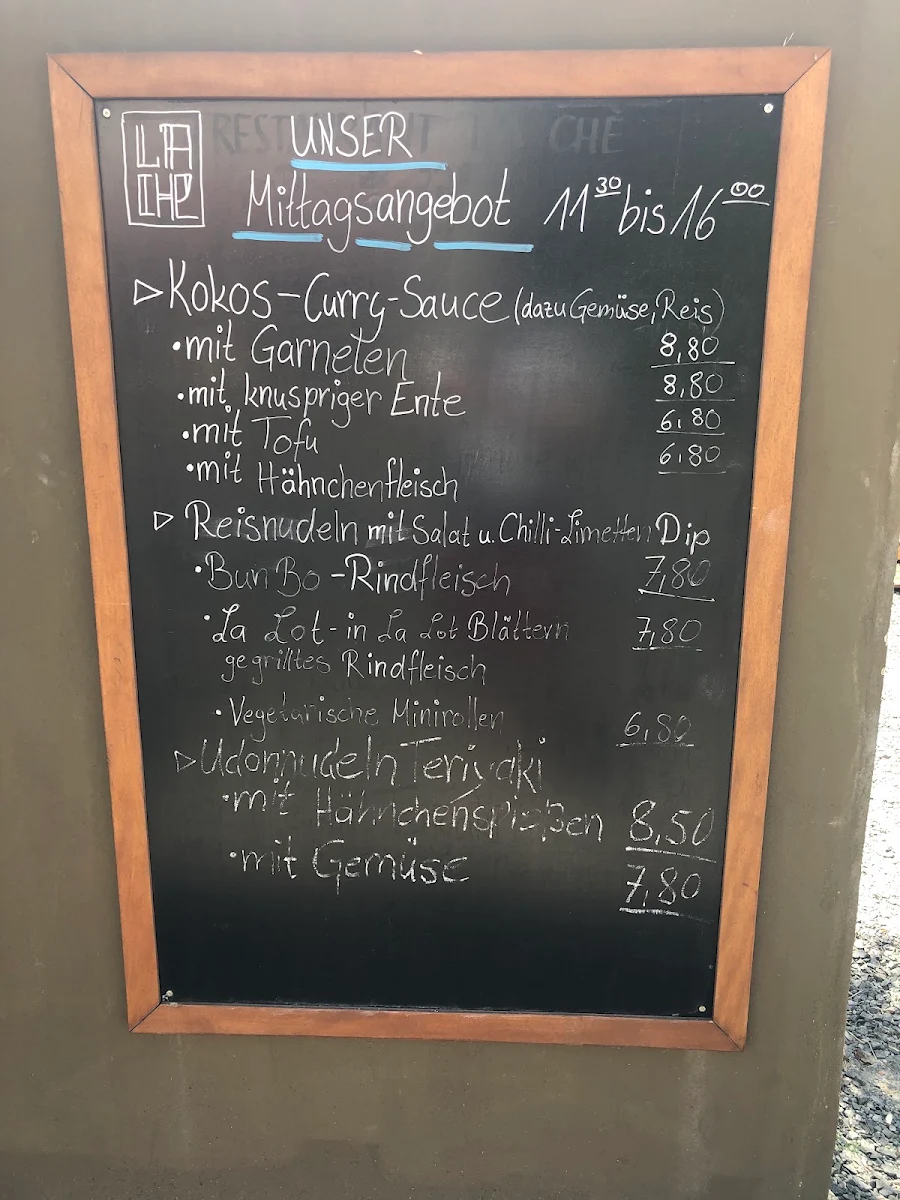 LA
CHÊ
UNSER
Mittagsangebot 11³⁰ bis 16⁰⁰
▷ Kokos-Curry-Sauce (dazu Gemüse, Reis)
• mit Garnelen 8,80
• mit knuspriger Ente 8,80
• mit Tofu 6,80
• mit Hähnchenfleisch 6,80
▷ Reisnudeln mit Salat u. Chilli-Limetten Dip
• Bun Bo - Rindfleisch 7,80
• La Lot - in La Lot Blättern 7,80
gegrilltes Rindfleisch
• Vegetarische Minirollen 6,80
▷ Udonnudeln Teriyaki
• mit Hähnchenspießen 8,50
• mit Gemüse 7,80